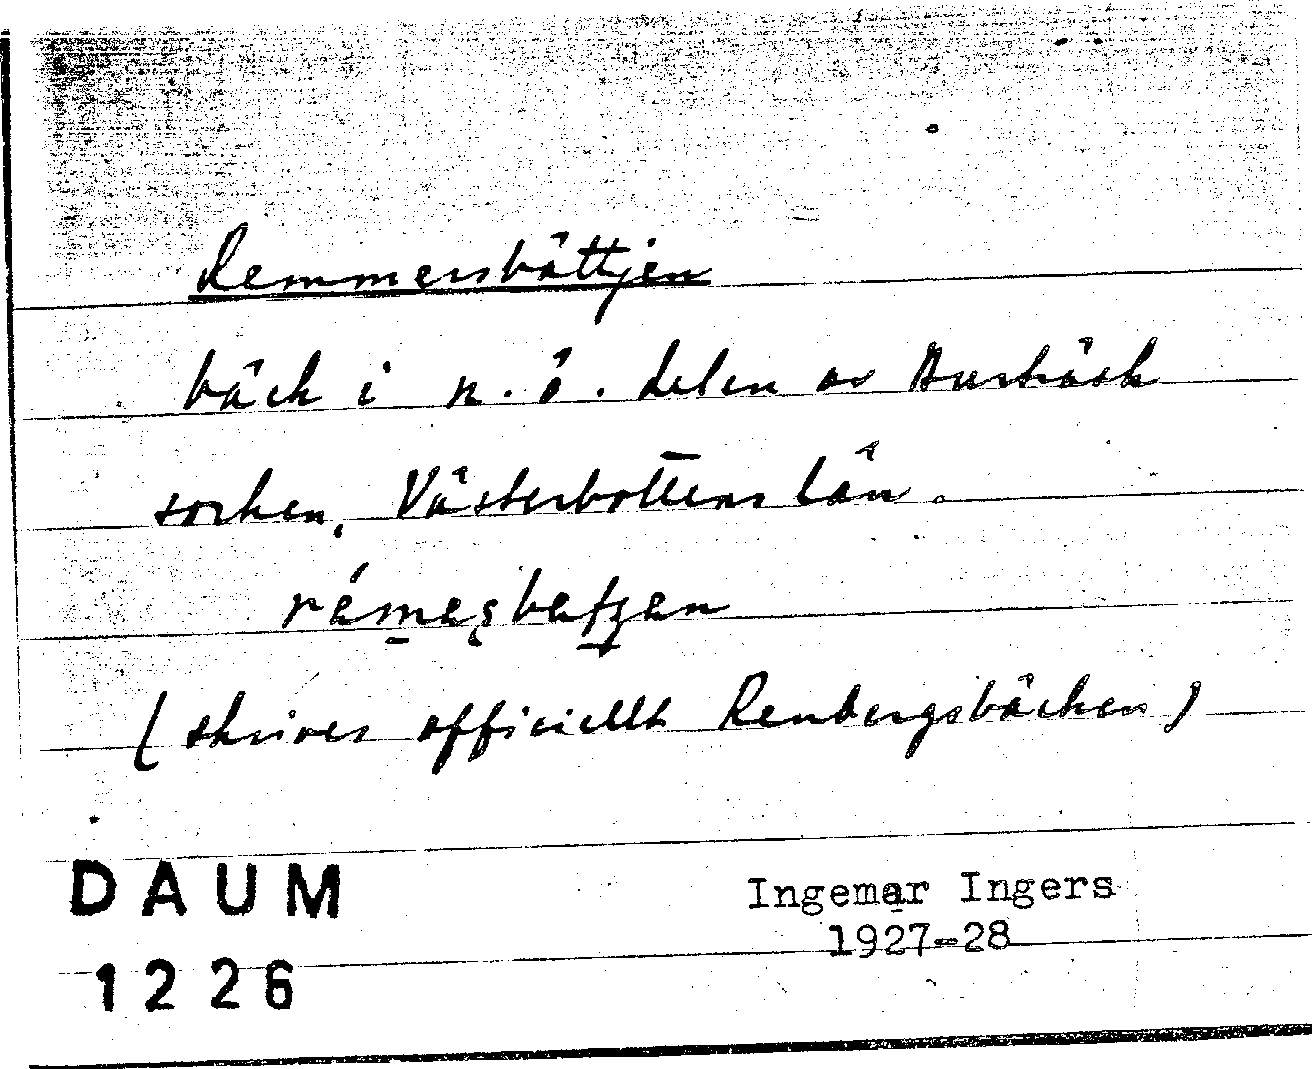 Remmersbättjen
bäck i n.ö. delen av Burträsk
socken, Västerbottens län.
rémesbatjen
(skrives officiellt Renbergsbäcken)
DAUM
1226
Ingemar Ingers
1927-28